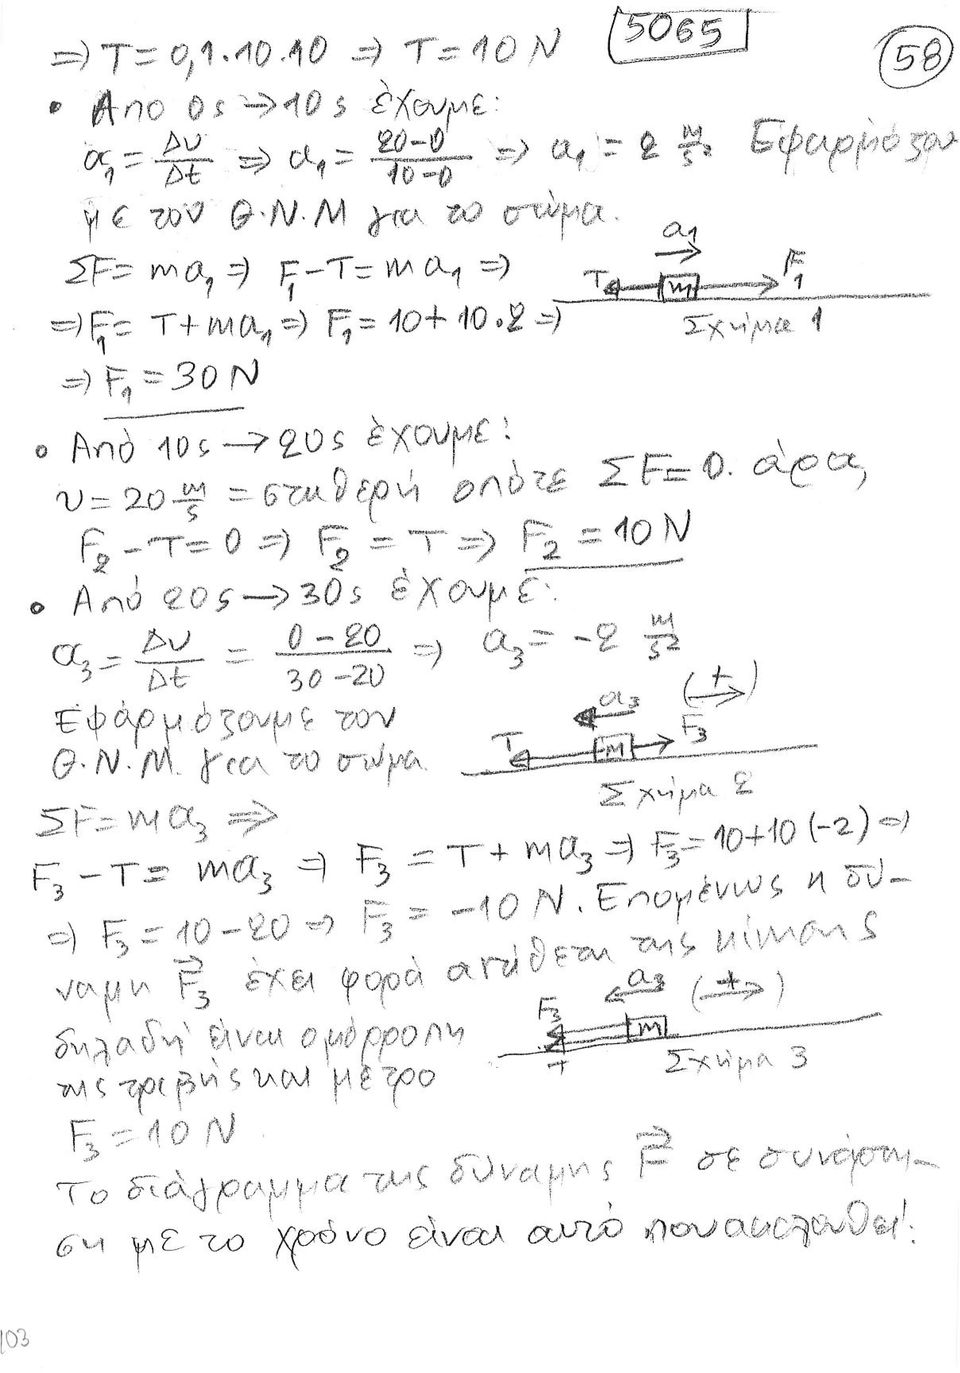 5065
58
=> T = 0,1·10·10 => T = 10 N
• Από 0s → 10s έχουμε:
α₁ = Δυ/Δt => α₁ = 20-0/10-0 => α₁ = 2 m/s² Εφαρμόζου
με τον Θ.Ν.Μ για το σώμα.
ΣF = mα₁ => F₁ - T = mα₁ =>
α₁
T m F₁
=> F₁ = T + mα₁ => F₁ = 10 + 10·2 =>
Σχήμα 1
=> F₁ = 30 N
• Από 10s → 20s έχουμε:
υ = 20 m/s = σταθερή οπότε ΣF = 0. άρα,
F₂ - T = 0 => F₂ = T => F₂ = 10 N
• Από 20s → 30s έχουμε:
α₃ = Δυ/Δt = 0-20/30-20 => α₃ = -2 m/s²
Εφάρμόζουμε τον
Θ.Ν.Μ. για το σώμα
α₃ (+)
T m F₃
Σχήμα 2
ΣF = mα₃ =>
F₃ - T = mα₃ => F₃ = T + mα₃ => F₃ = 10 + 10(-2) =>
=> F₃ = 10 - 20 => F₃ = -10 N. Επομένως η δύ-
ναμη F₃ έχει φορά αντίθετη της κίνησης
δηλαδή είναι ομόρροπη
της τριβής και μέτρο
F₃ = 10 N
α₃ (+)
F₃ m
T
Σχήμα 3
Το διάγραμμα της δύναμης F σε συνάρτη-
ση με το χρόνο είναι αυτό που ακολουθεί:
103